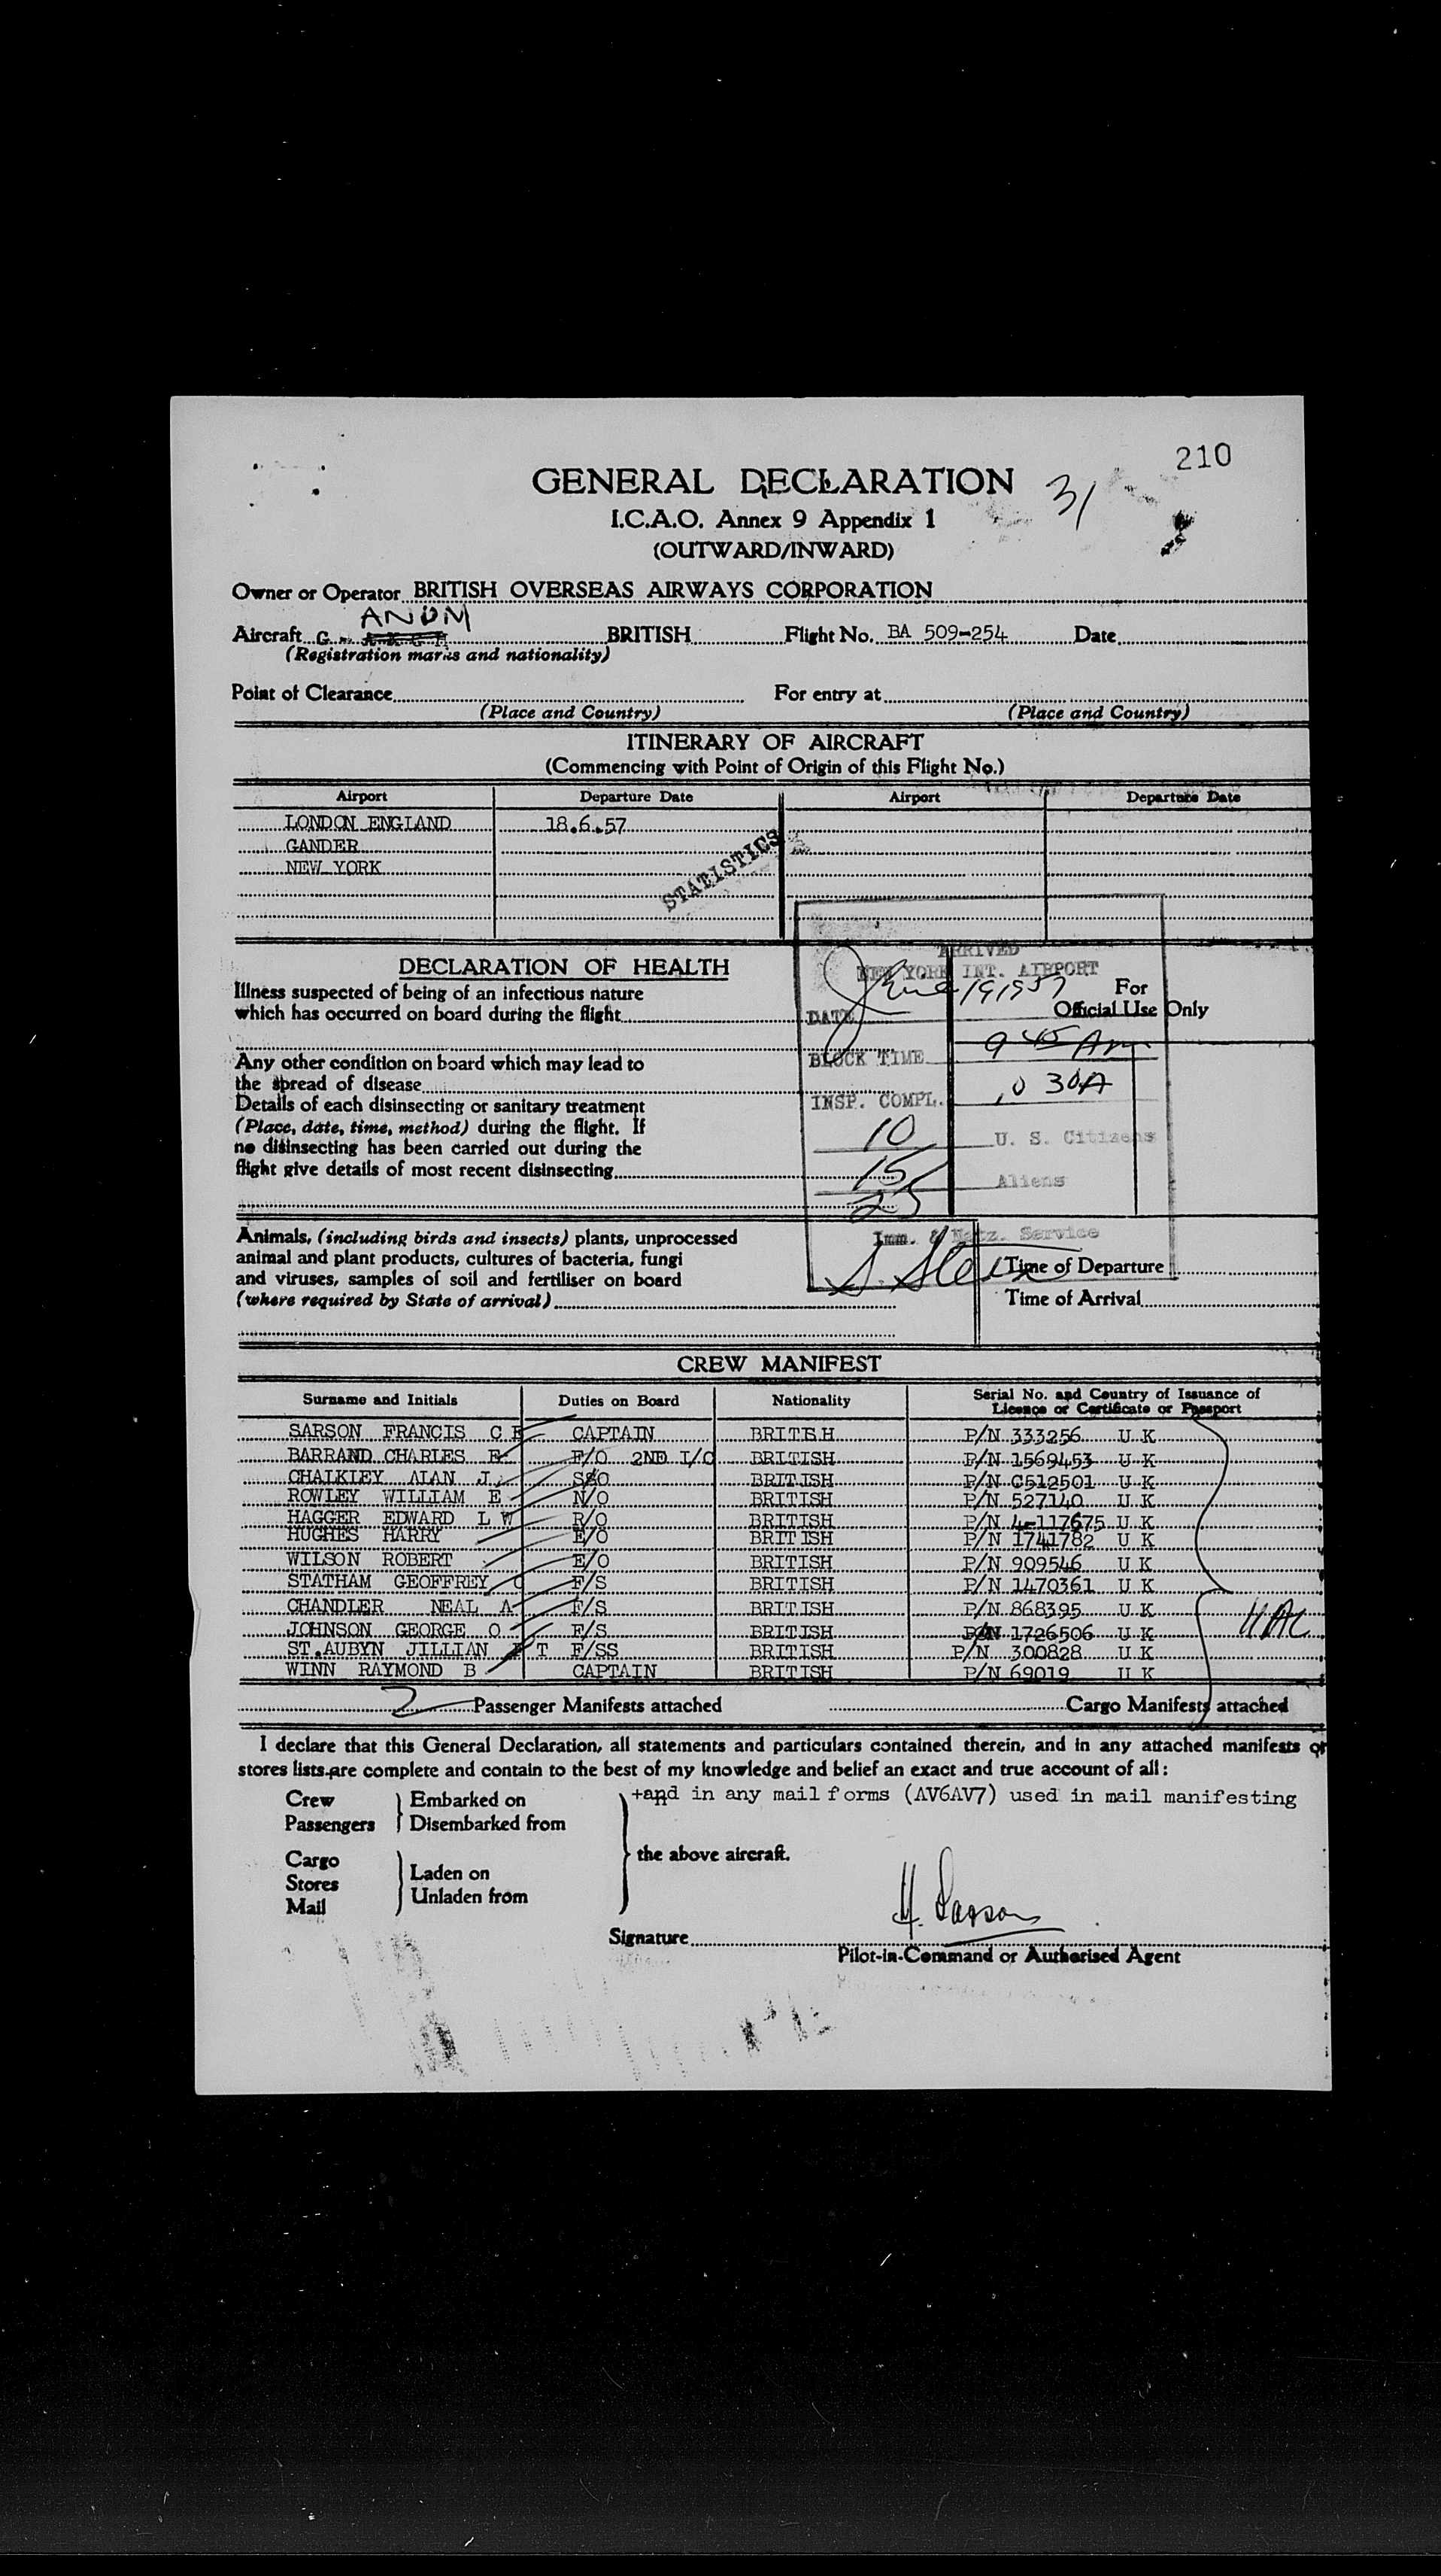 210
GENERAL DECLARATION 31
I.C.A.O. Annex 9 Appendix 1
(OUTWARD/INWARD)
Owner or Operator BRITISH OVERSEAS AIRWAYS CORPORATION
ANDM
Aircraft G - BRITISH Flight No. BA 509-254 Date
(Registration marks and nationality)
Point of Clearance For entry at
(Place and Country) (Place and Country)
ITINERARY OF AIRCRAFT
(Commencing with Point of Origin of this Flight No.)
Airport Departure Date Airport Departure Date
LONDON ENGLAND 18.6.57
GANDER
NEW YORK
STATISTICS
ARRIVED
NEW YORK INT. AIRPORT
DATE June 19 1957
BLOCK TIME 9 45 Am
INSP. COMPL. 10 30A
10 U. S. Citizens
15 Aliens
25
Imm. & Natz. Service
S. Stein
For
Official Use Only
DECLARATION OF HEALTH
Illness suspected of being of an infectious nature
which has occurred on board during the flight
Any other condition on board which may lead to
the spread of disease
Details of each disinsecting or sanitary treatment
(Place, date, time, method) during the flight. If
no disinsecting has been carried out during the
flight give details of most recent disinsecting
Animals, (including birds and insects) plants, unprocessed
animal and plant products, cultures of bacteria, fungi
and viruses, samples of soil and fertiliser on board
(where required by State of arrival)
Time of Departure
Time of Arrival
CREW MANIFEST
Surname and Initials Duties on Board Nationality Serial No. and Country of Issuance of
Licence or Certificate or Passport
SARSON FRANCIS C E CAPTAIN BRITISH P/N 333256 U K
BARRAND CHARLES E F/O 2ND I/C BRITISH P/N 1569453 U K
CHALKLEY ALAN J. S/O BRITISH P/N C512501 U K
ROWLEY WILLIAM E N/O BRITISH P/N 527140 U K
HAGGER EDWARD L W R/O BRITISH P/N 4-117675 U K
HUGHES HARRY E/O BRITISH P/N 1741782 U K
WILSON ROBERT E/O BRITISH P/N 909546 U K
STATHAM GEOFFREY C F/S BRITISH P/N 1470361 U K
CHANDLER NEAL A F/S BRITISH P/N 868395 U K
JOHNSON GEORGE O F/S BRITISH P/N 1726506 U K
ST.AUBYN JILLIAN T F/SS BRITISH P/N 300828 U K
WINN RAYMOND B CAPTAIN BRITISH P/N 69019 U K
2 Passenger Manifests attached Cargo Manifests attached
I declare that this General Declaration, all statements and particulars contained therein, and in any attached manifests or
stores lists are complete and contain to the best of my knowledge and belief an exact and true account of all:
Crew Embarked on +and in any mail forms (AV6AV7) used in mail manifesting
Passengers Disembarked from
Cargo the above aircraft.
Stores Laden on
Mail Unladen from
Signature H. Sarson
Pilot-in-Command or Authorised Agent